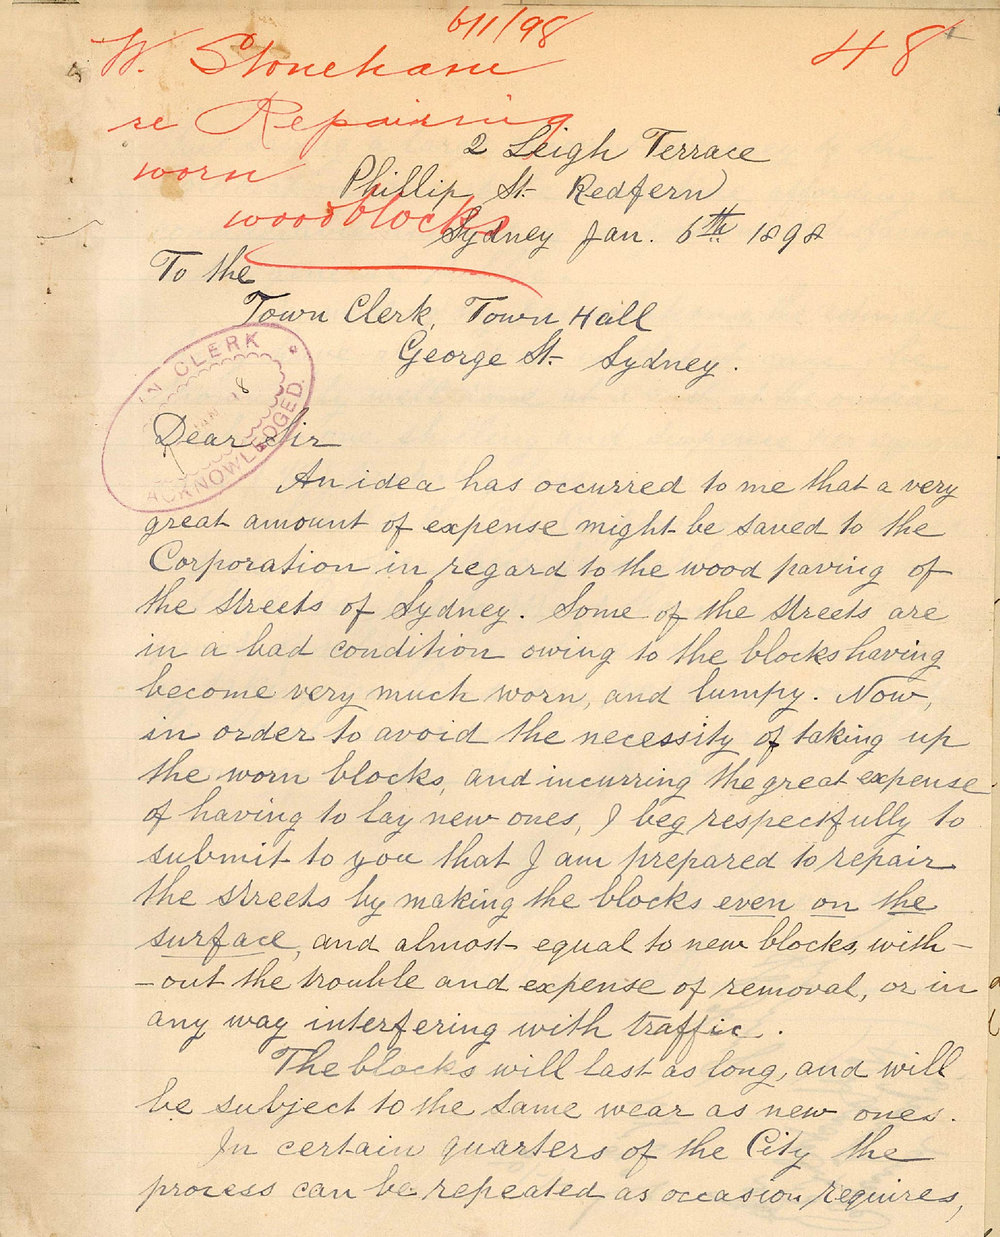 6/1/98
48
W. Stoneham
re Repairing
worn
wood blocks
2 Leigh Terrace
Phillip St. Redfern
Sydney Jan. 6th 1898
To the
Town Clerk, Town Hall
George St. Sydney.
CLERK
JAN 98
ACKNOWLEDGED.
Dear Sir
An idea has occurred to me that a very
great amount of expense might be saved to the
Corporation in regard to the wood paving of
the streets of Sydney. Some of the streets are
in a bad condition owing to the blocks having
become very much worn, and lumpy. Now,
in order to avoid the necessity of taking up
the worn blocks, and incurring the great expense
of having to lay new ones, I beg respectfully to
submit to you that I am prepared to repair
the streets by making the blocks even on the
surface, and almost equal to new blocks, with-
-out the trouble and expense of removal, or in
any way interfering with traffic.
The blocks will last as long, and will
be subject to the same wear as new ones.
In certain quarters of the City the
process can be repeated as occasion requires,